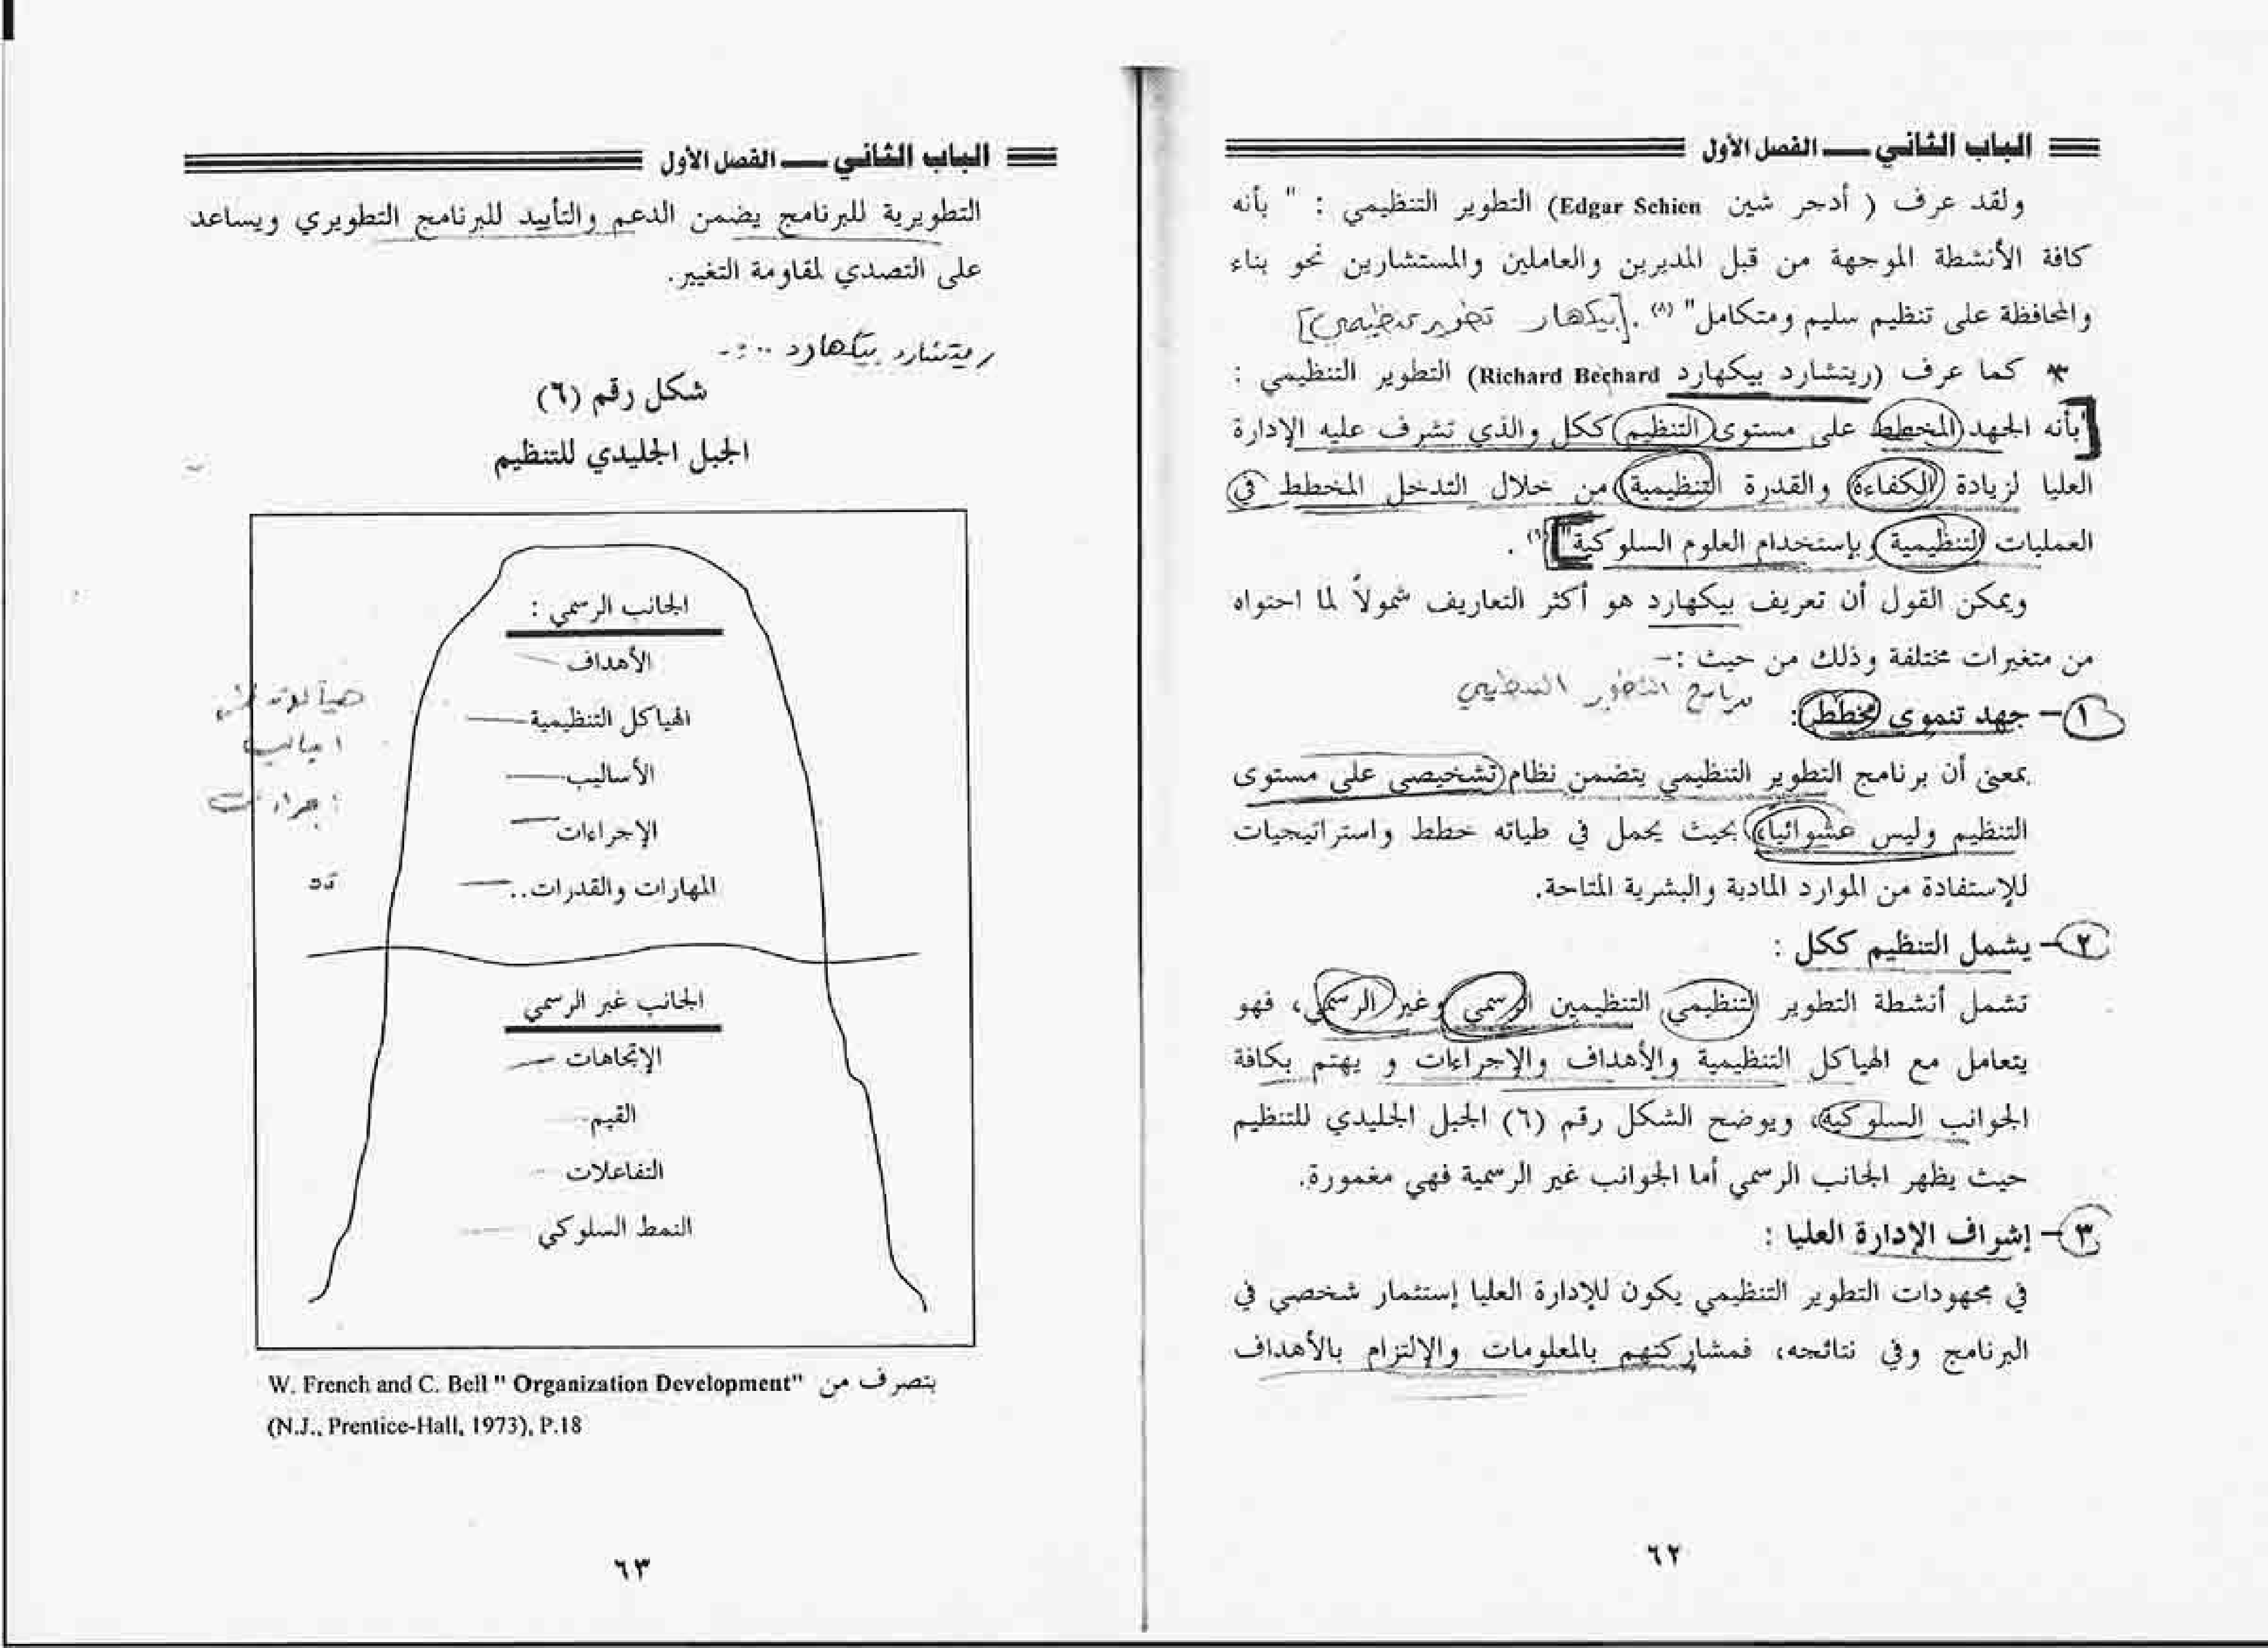 الباب الثاني — الفصل الأول
ولقد عرف ( أدجر شين Edgar Schien) التطوير التنظيمي : " بأنه
كافة الأنشطة الموجهة من قبل المديرين والعاملين والمستشارين نحو بناء
والمحافظة على تنظيم سليم ومتكامل" (٨) . [بيكهار تطوير تنظيمي]
* كما عرف (ريتشارد بيكهارد Richard Bechard) التطوير التنظيمي :
"بأنه الجهد المخطط على مستوى التنظيم ككل والذي تشرف عليه الإدارة
العليا لزيادة الكفاءة والقدرة التنظيمية من خلال التدخل المخطط في
العمليات التنظيمية بإستخدام العلوم السلوكية" (٩) .
ويمكن القول أن تعريف بيكهارد هو أكثر التعاريف شمولاً لما احتواه
من متغيرات مختلفة وذلك من حيث :–
برنامج التطوير التنظيمي
١– جهد تنموي مخطط:
بمعنى أن برنامج التطوير التنظيمي يتضمن نظام تشخيصي على مستوى
التنظيم وليس عشوائياً بحيث يحمل في طياته خطط واستراتيجيات
للإستفادة من الموارد المادية والبشرية المتاحة.
٢– يشمل التنظيم ككل :
تشمل أنشطة التطوير التنظيمي التنظيمين الرسمي وغير الرسمي، فهو
يتعامل مع الهياكل التنظيمية والأهداف والإجراءات و يهتم بكافة
الجوانب السلوكية، ويوضح الشكل رقم (٦) الجبل الجليدي للتنظيم
حيث يظهر الجانب الرسمي أما الجوانب غير الرسمية فهي مغمورة.
٣– إشراف الإدارة العليا :
في مجهودات التطوير التنظيمي يكون للإدارة العليا إستثمار شخصي في
البرنامج وفي نتائجه، فمشاركتهم بالمعلومات والإلتزام بالأهداف
٦٢
الباب الثاني — الفصل الأول
التطويرية للبرنامج يضمن الدعم والتأييد للبرنامج التطويري ويساعد
على التصدي لمقاومة التغيير.
ريتشارد بيكهارد ..:-
شكل رقم (٦)
الجبل الجليدي للتنظيم
الجانب الرسمي :
الأهداف
الهياكل التنظيمية
الأساليب
الإجراءات
المهارات والقدرات..
الجانب غير الرسمي
الإتجاهات
القيم
التفاعلات
النمط السلوكي
بتصرف من W. French and C. Bell " Organization Development"
(N.J., Prentice-Hall, 1973), P.18
٦٣